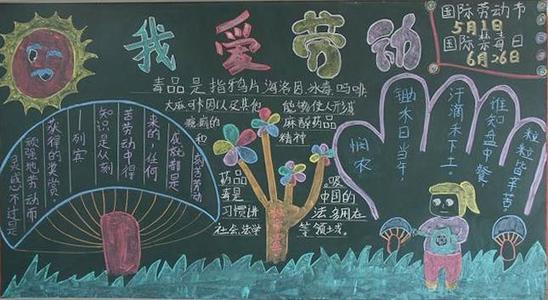 我爱劳动
国际劳动节
5月1日
国际禁毒日
6月26日
毒品是指鸦片海洛因冰毒吗啡
大麻可卡因以及其他 能够使人形成
瘾癖的 麻醉药品
和 精神
药品 吸
毒是 中国的
习惯进 法多用在
社会法学 等领域。
灵感不过是
顽强地劳动而
获得的奖赏。
—列宾
知识是从刻
苦劳动中得
来的,任何
成就都是
刻苦劳动
悯农
锄禾日当午,
汗滴禾下土。
谁知盘中餐
粒粒皆辛苦